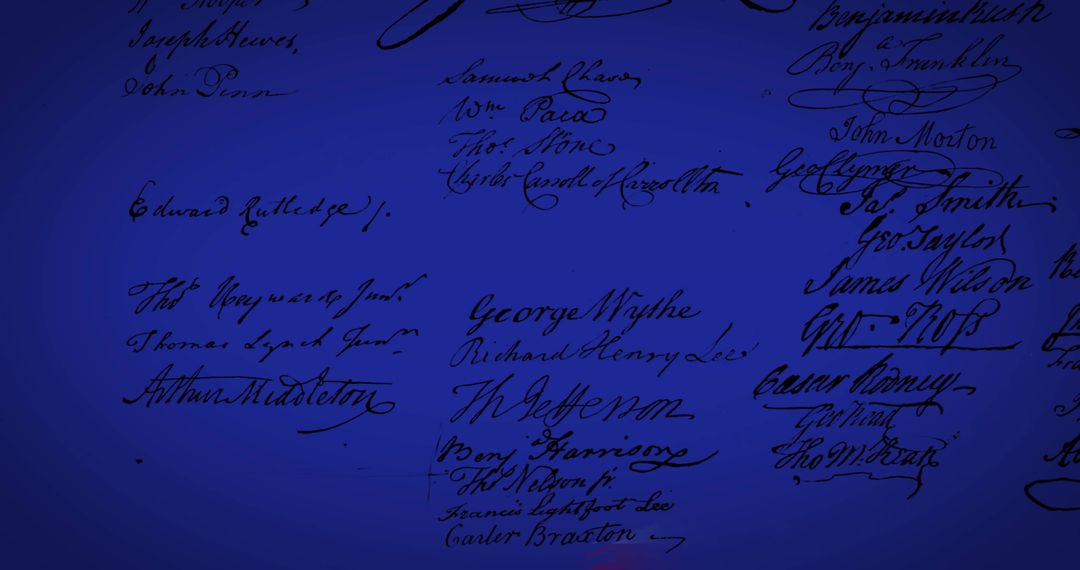 Joseph Hewes,
John Penn
Edward Rutledge /.
Thos Heyward Junr.
Thomas Lynch Junr.
Arthur Middleton
Samuel Chase
Wm Paca
Thos. Stone
Charles Carroll of Carrollton
George Wythe
Richard Henry Lee
Th Jefferson
Benja Harrison
Thos Nelson jr.
Francis Lightfoot Lee
Carter Braxton
Benjamin Rush
Benja. Franklin
John Morton
Geo Clymer
Jas. Smith
Geo. Taylor
James Wilson
Geo. Ross
Caesar Rodney
Geo Read
Tho M:Kean